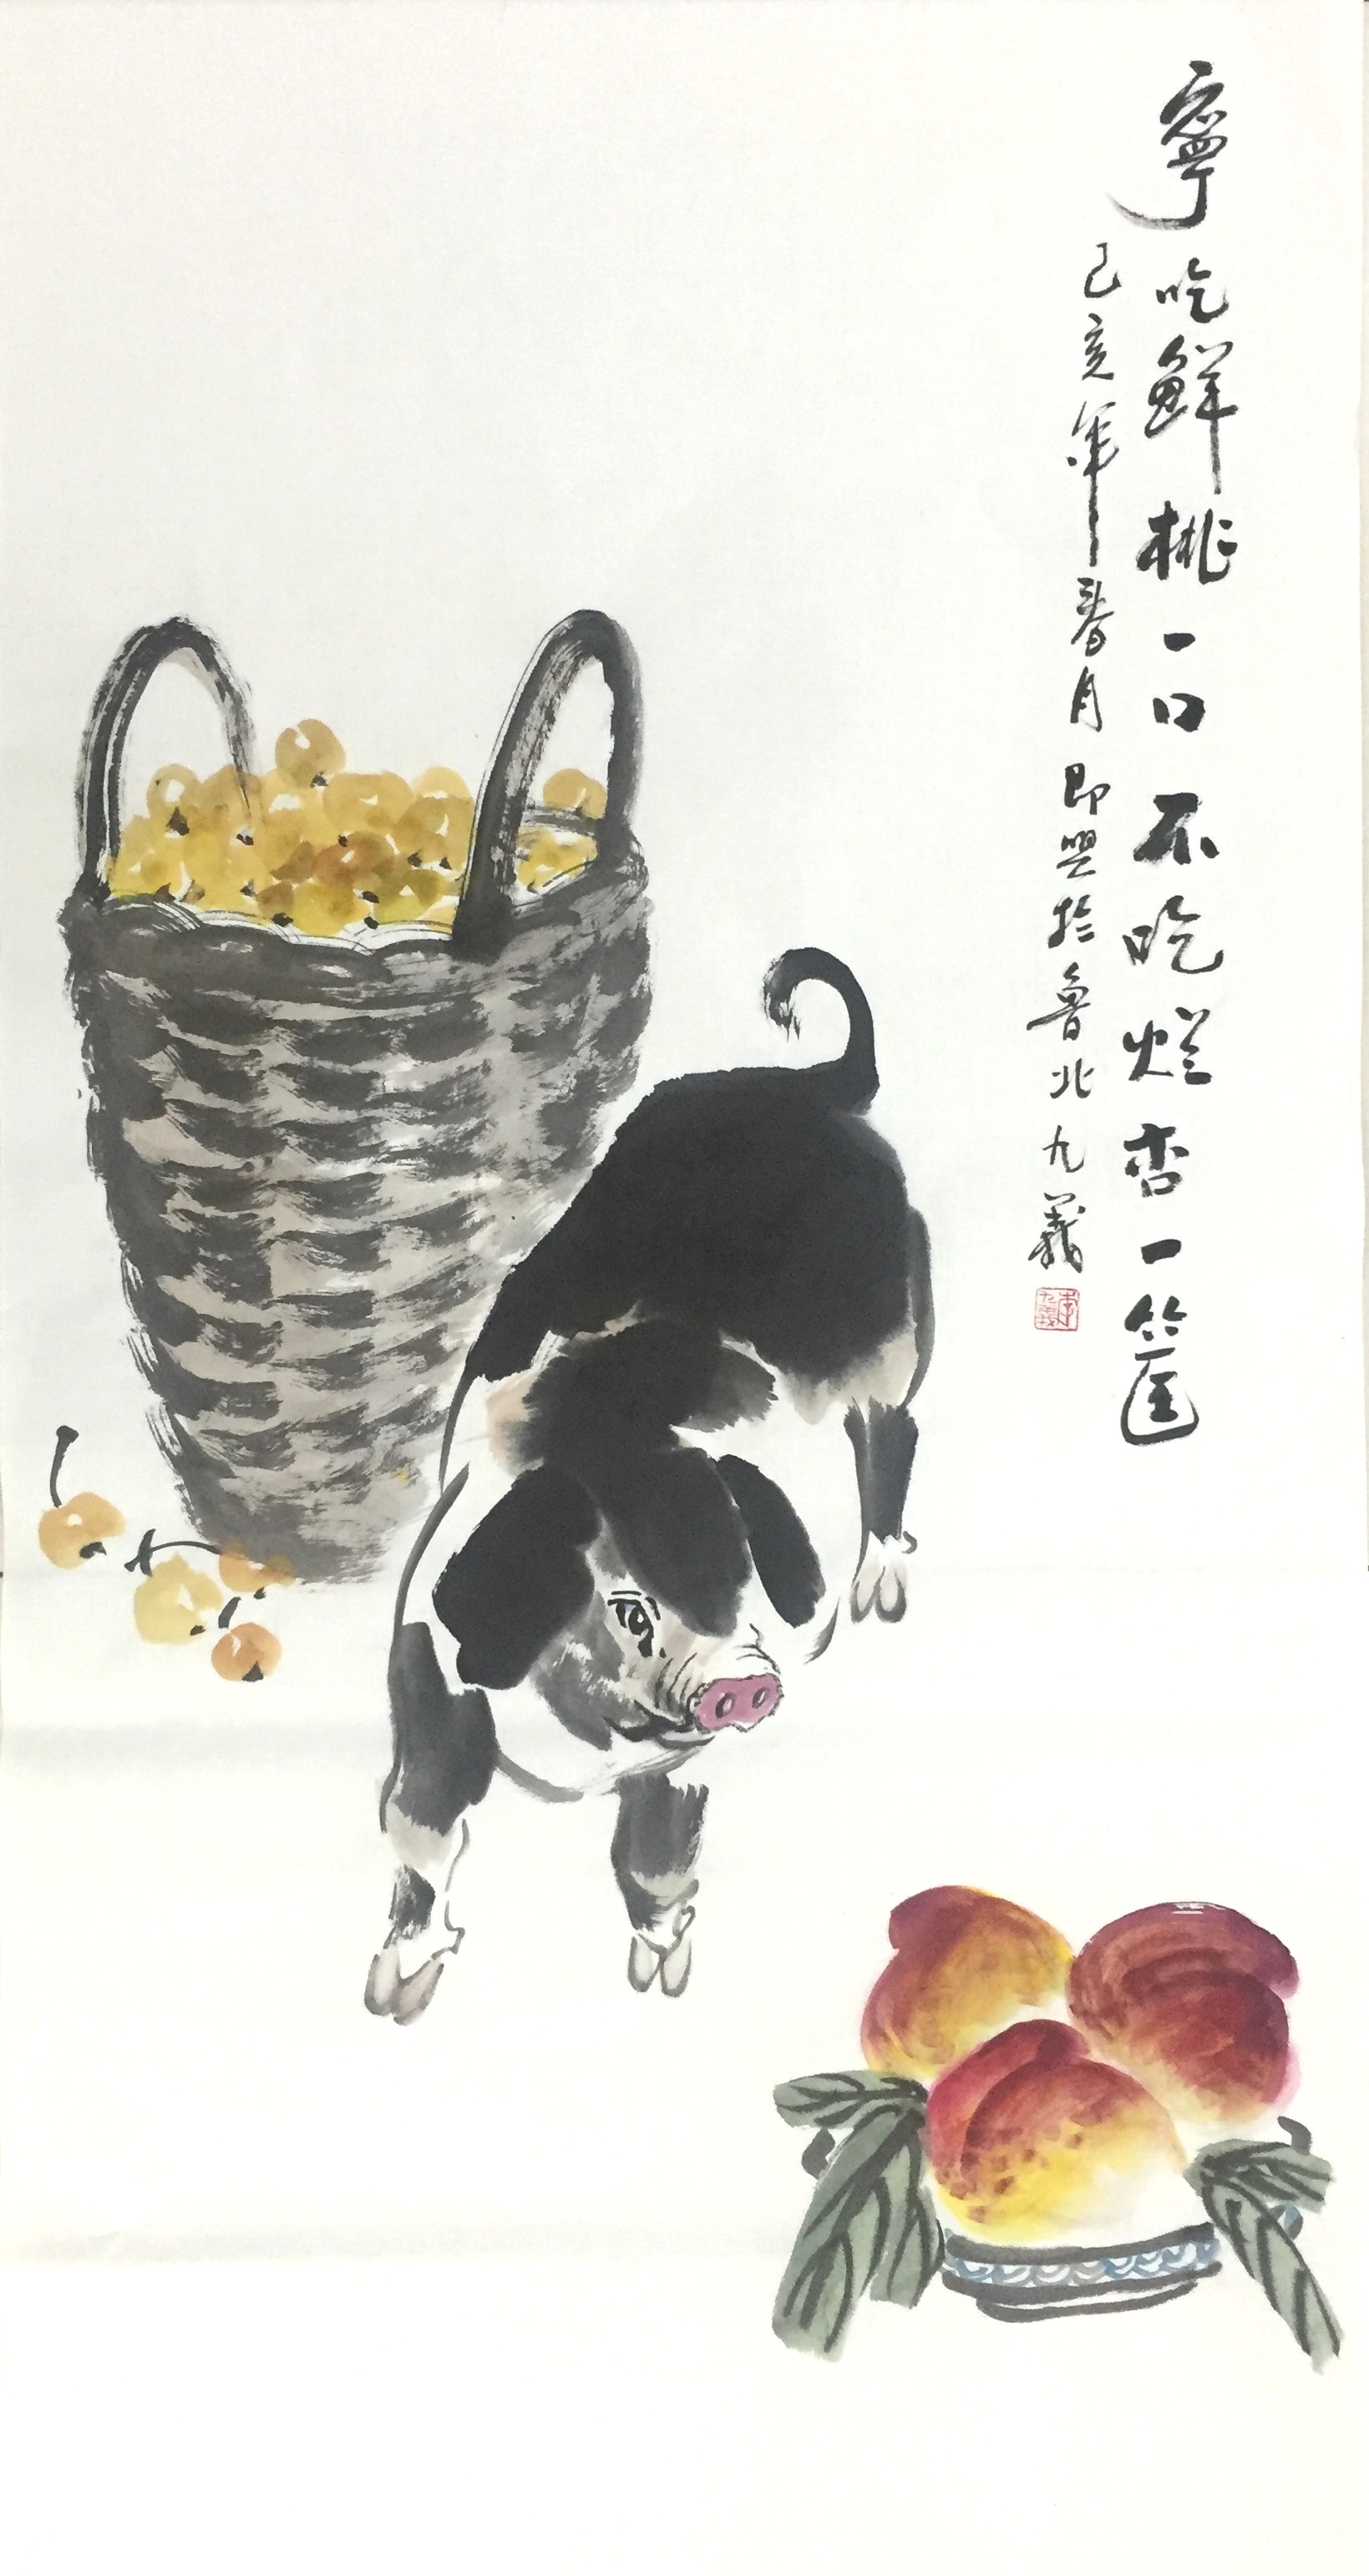 寧吃鮮桃一口不吃烂杏一筐
己亥年春月即兴於魯北九義
李九義